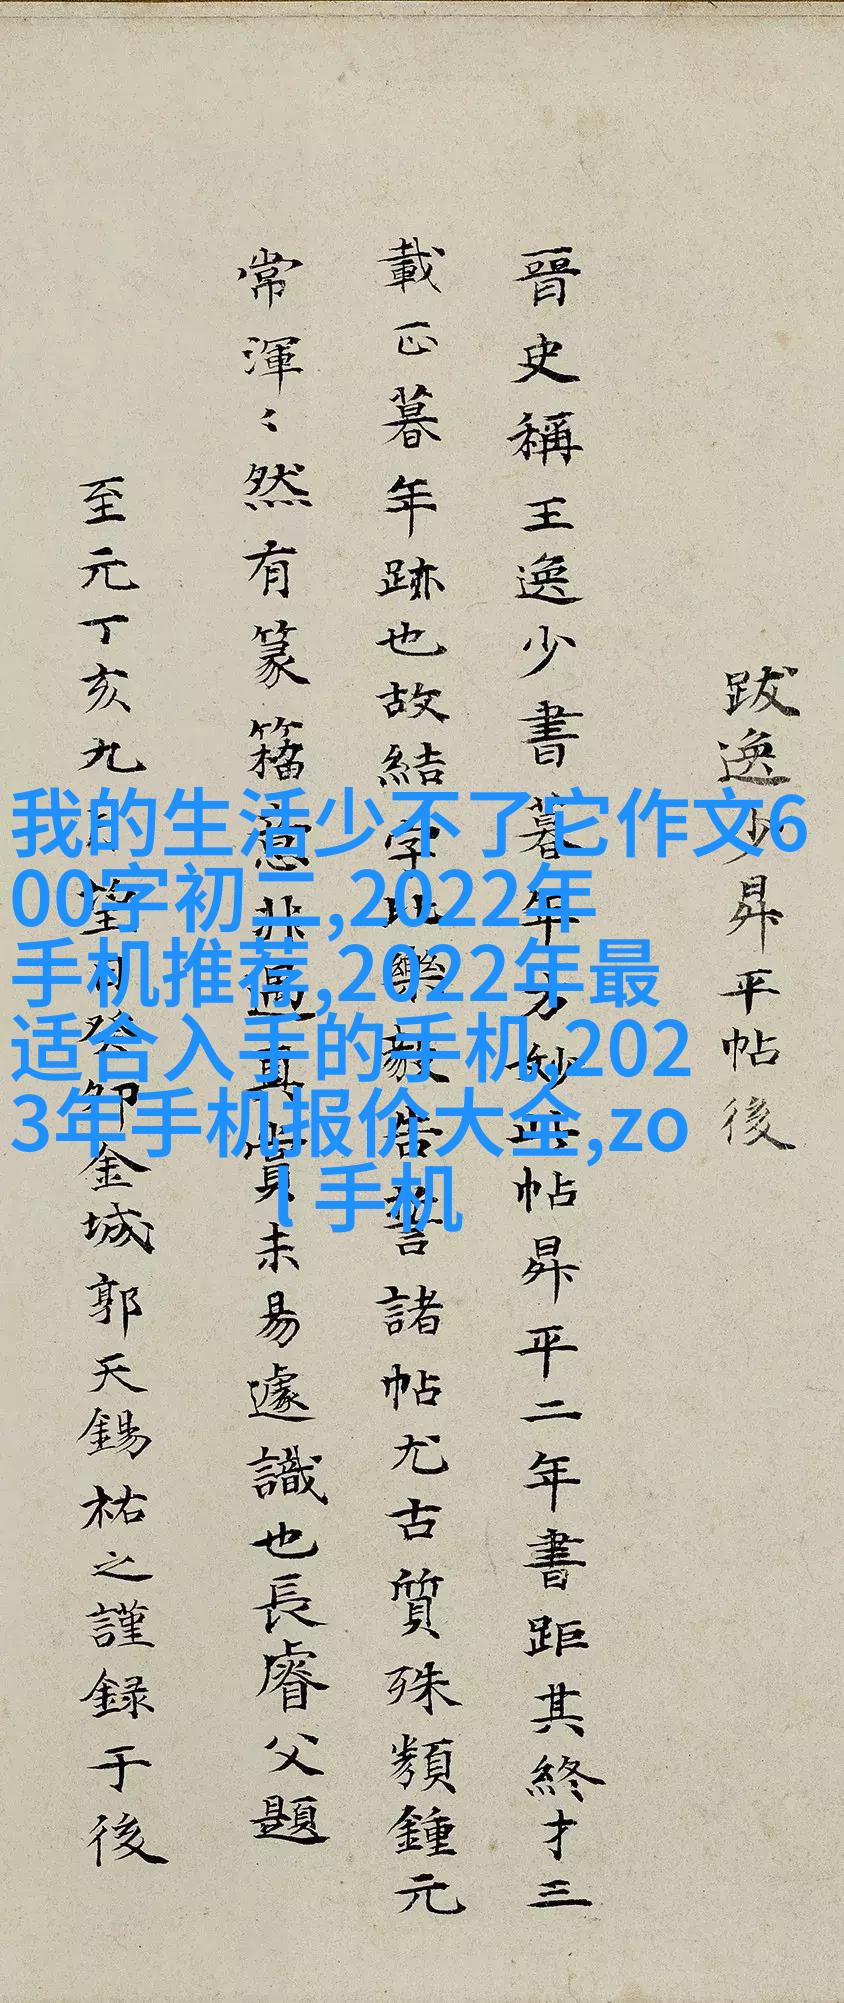 跋逸少昇平帖後
晉史稱王逸少書暮年方妙此帖昇平二年書距其終才三
載正暮年跡也故結字比樂毅告誓諸帖尤古質殊類鍾元
常渾〻然有篆籀意非遇真賞未易遽識也長睿父題
至元丁亥九月望日癸卯金城郭天錫祐之謹録于後
我的生活少不了它作文6
00字初二,2022年
手机推荐,2022年最
适合入手的手机,202
3年手机报价大全,zo
l手机